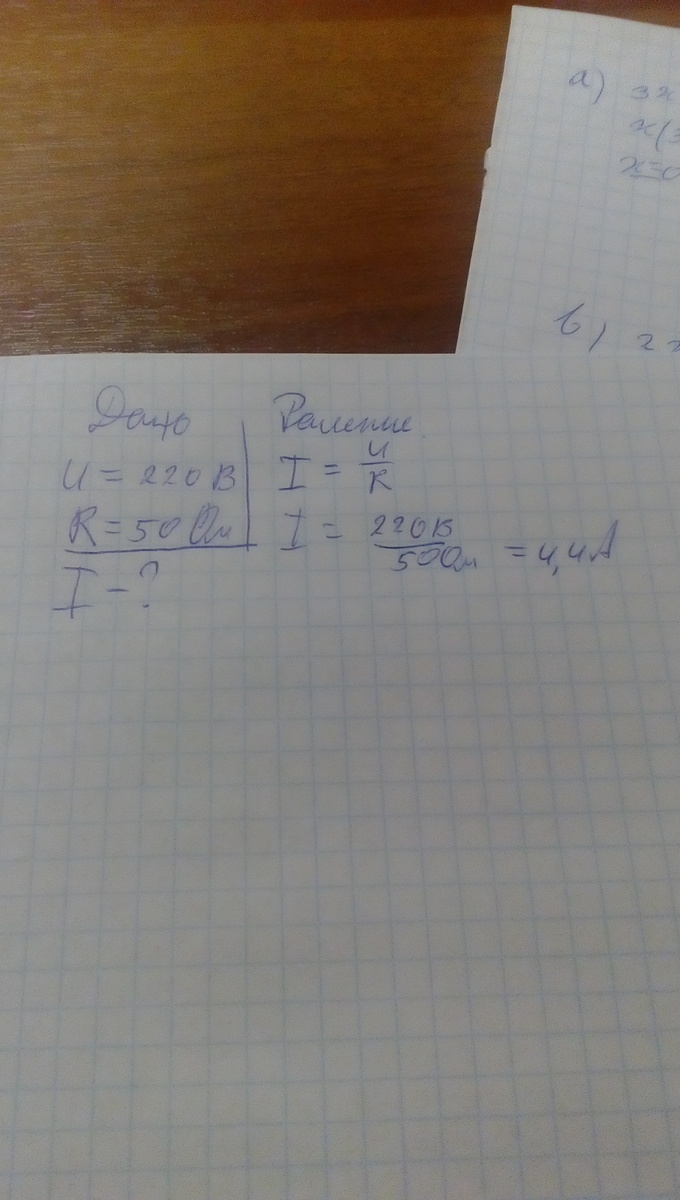 а) 3x
x(3
x=0
в) 2x
Дано
U = 220 В
R = 50 Ом
I - ?
Решение
I = U/R
I = 220В/50Ом = 4,4А